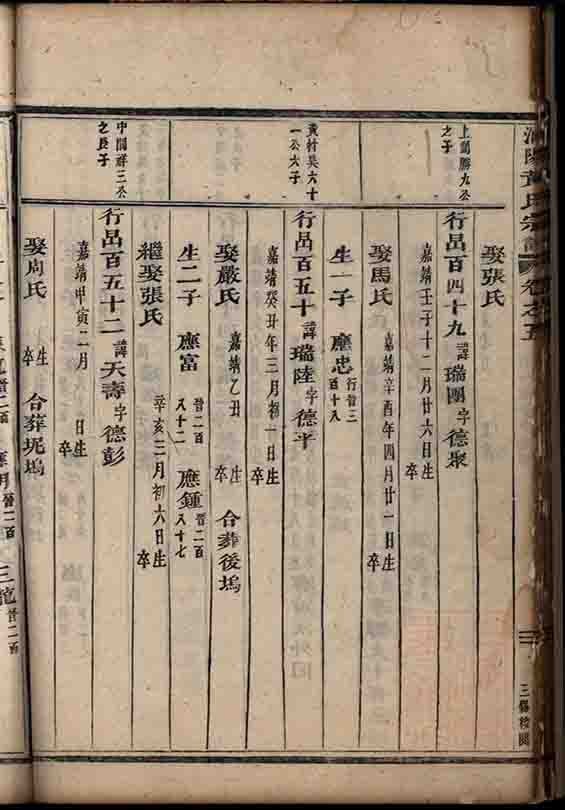 黃氏宗譜 卷之五
三錫校閱
娶張氏
上萬勝九公
之子
行昌百四十九 諱瑞團 字德聚
嘉靖壬子十二月廿六日生 卒
娶馬氏 嘉靖辛酉年四月廿一日生 卒
生一子 應忠 行晉三百十八
黃村昊六十
一公六子
行昌百五十 諱瑞陸 字德平
嘉靖癸丑年三月初一日生 卒
娶嚴氏 嘉靖乙丑 生 卒 合葬後塢
生二子 應富 晉二百八十二 應鍾 晉二百八十七
繼娶張氏 辛亥三月初六日生 卒
中園祥三公
之長子
行昌百五十二 諱天壽 字德彭
嘉靖甲寅二月 日生 卒
娶周氏 生 卒 合葬坭塢
晉二百 三龍 晉二百